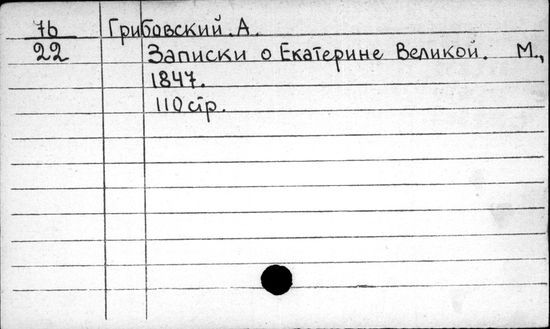 76 Грибовский. А.
22 Записки о Екатерине Великой. М.,
1847.
110 стр.